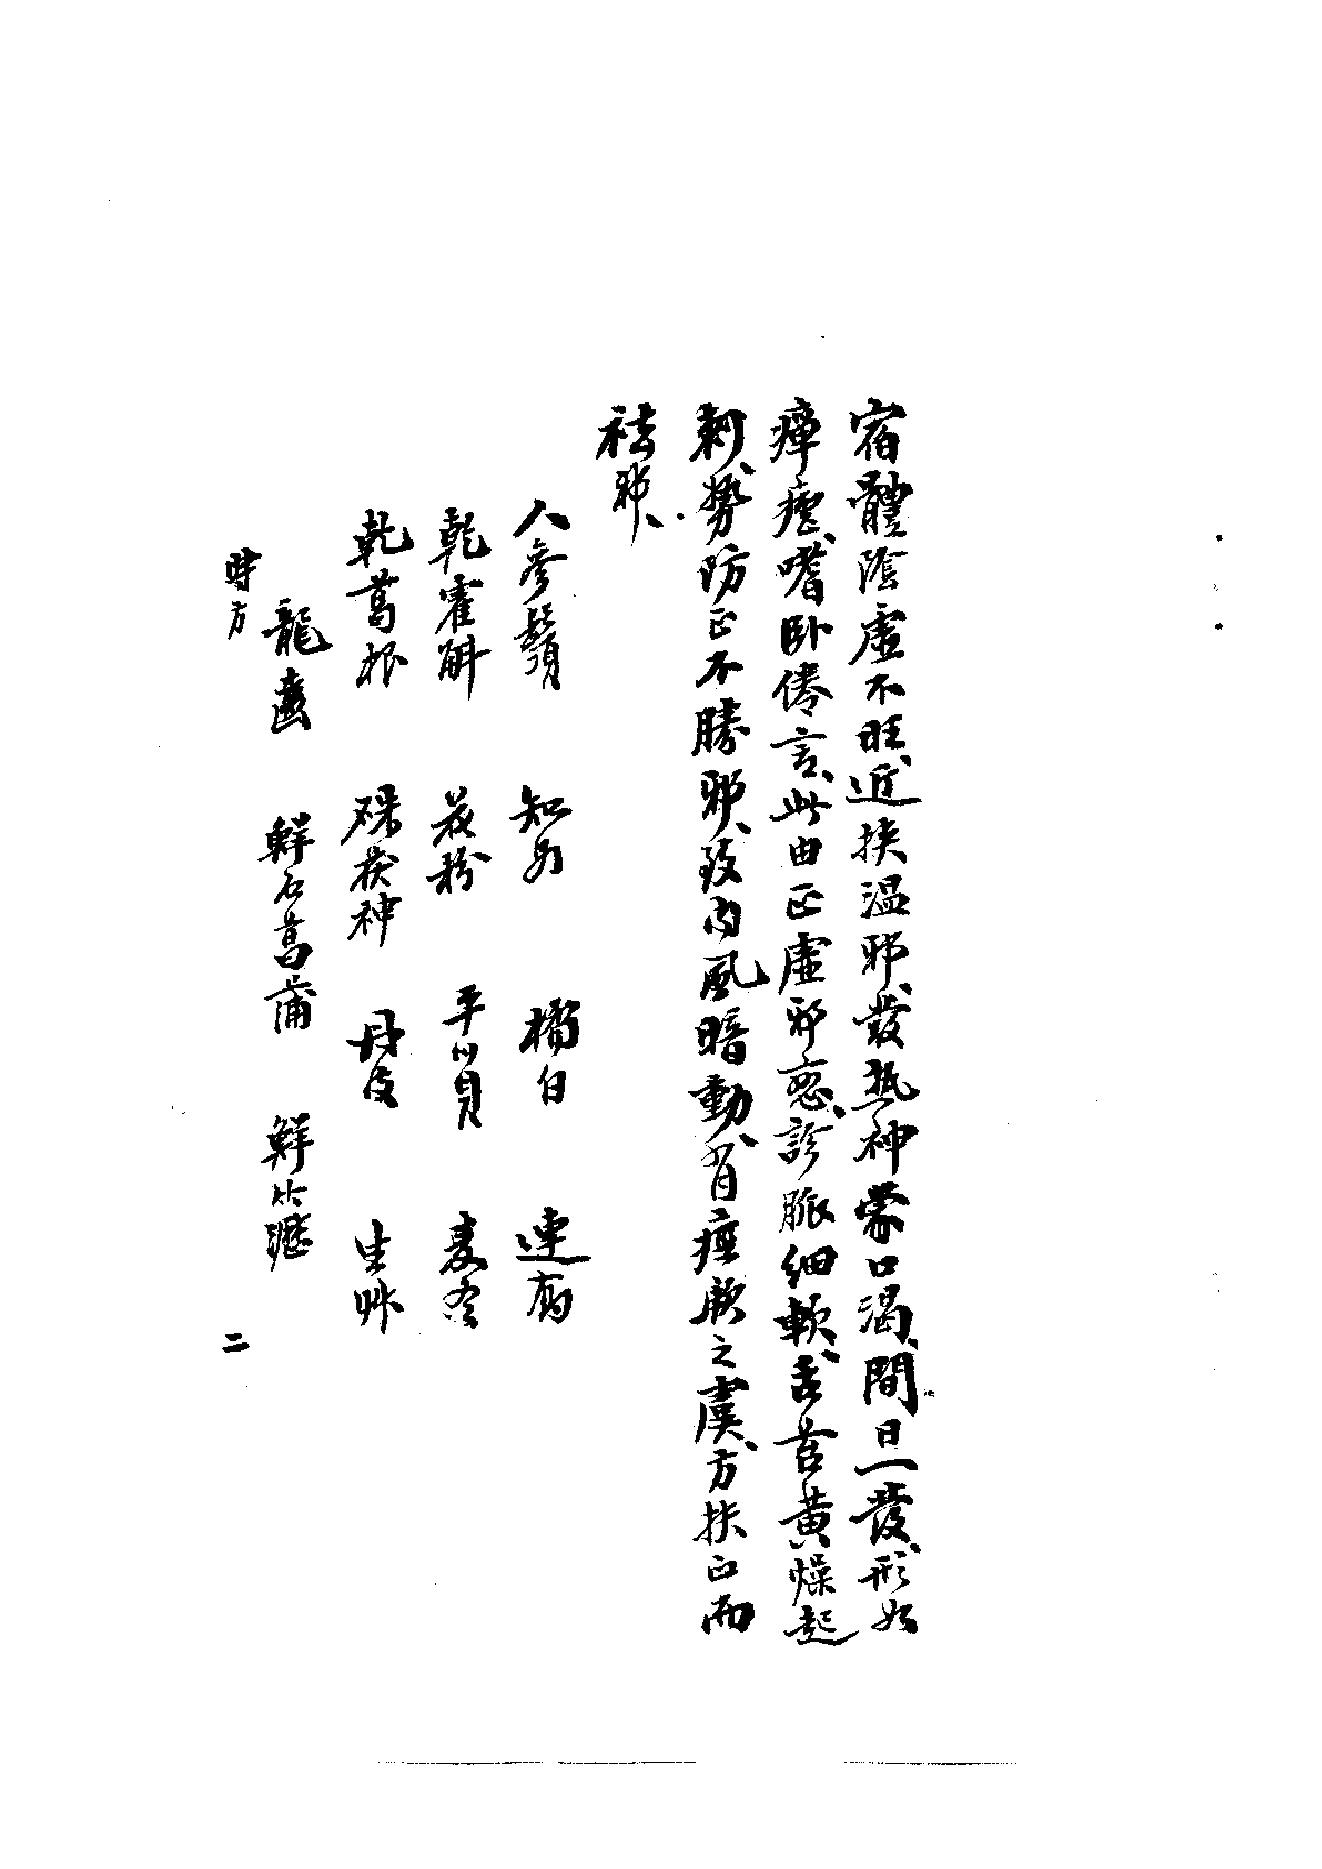 宿體陰虛不旺、近挾溫邪、發熱神蒙口渴、間日一發、形如
瘴瘧、嗜臥倦言、此由正虛邪戀、診脈細軟、舌苔黃燥起
刺、勢防正不勝邪、致內風暗動、有痙厥之虞、方扶正而
祛邪、
人參鬚 知母 橘白 連翹
乾霍斛 花粉 平川貝 麦冬
乾葛根 硃茯神 丹皮 生草
龍齒 鮮石菖蒲 鮮竹瀝
時方 二